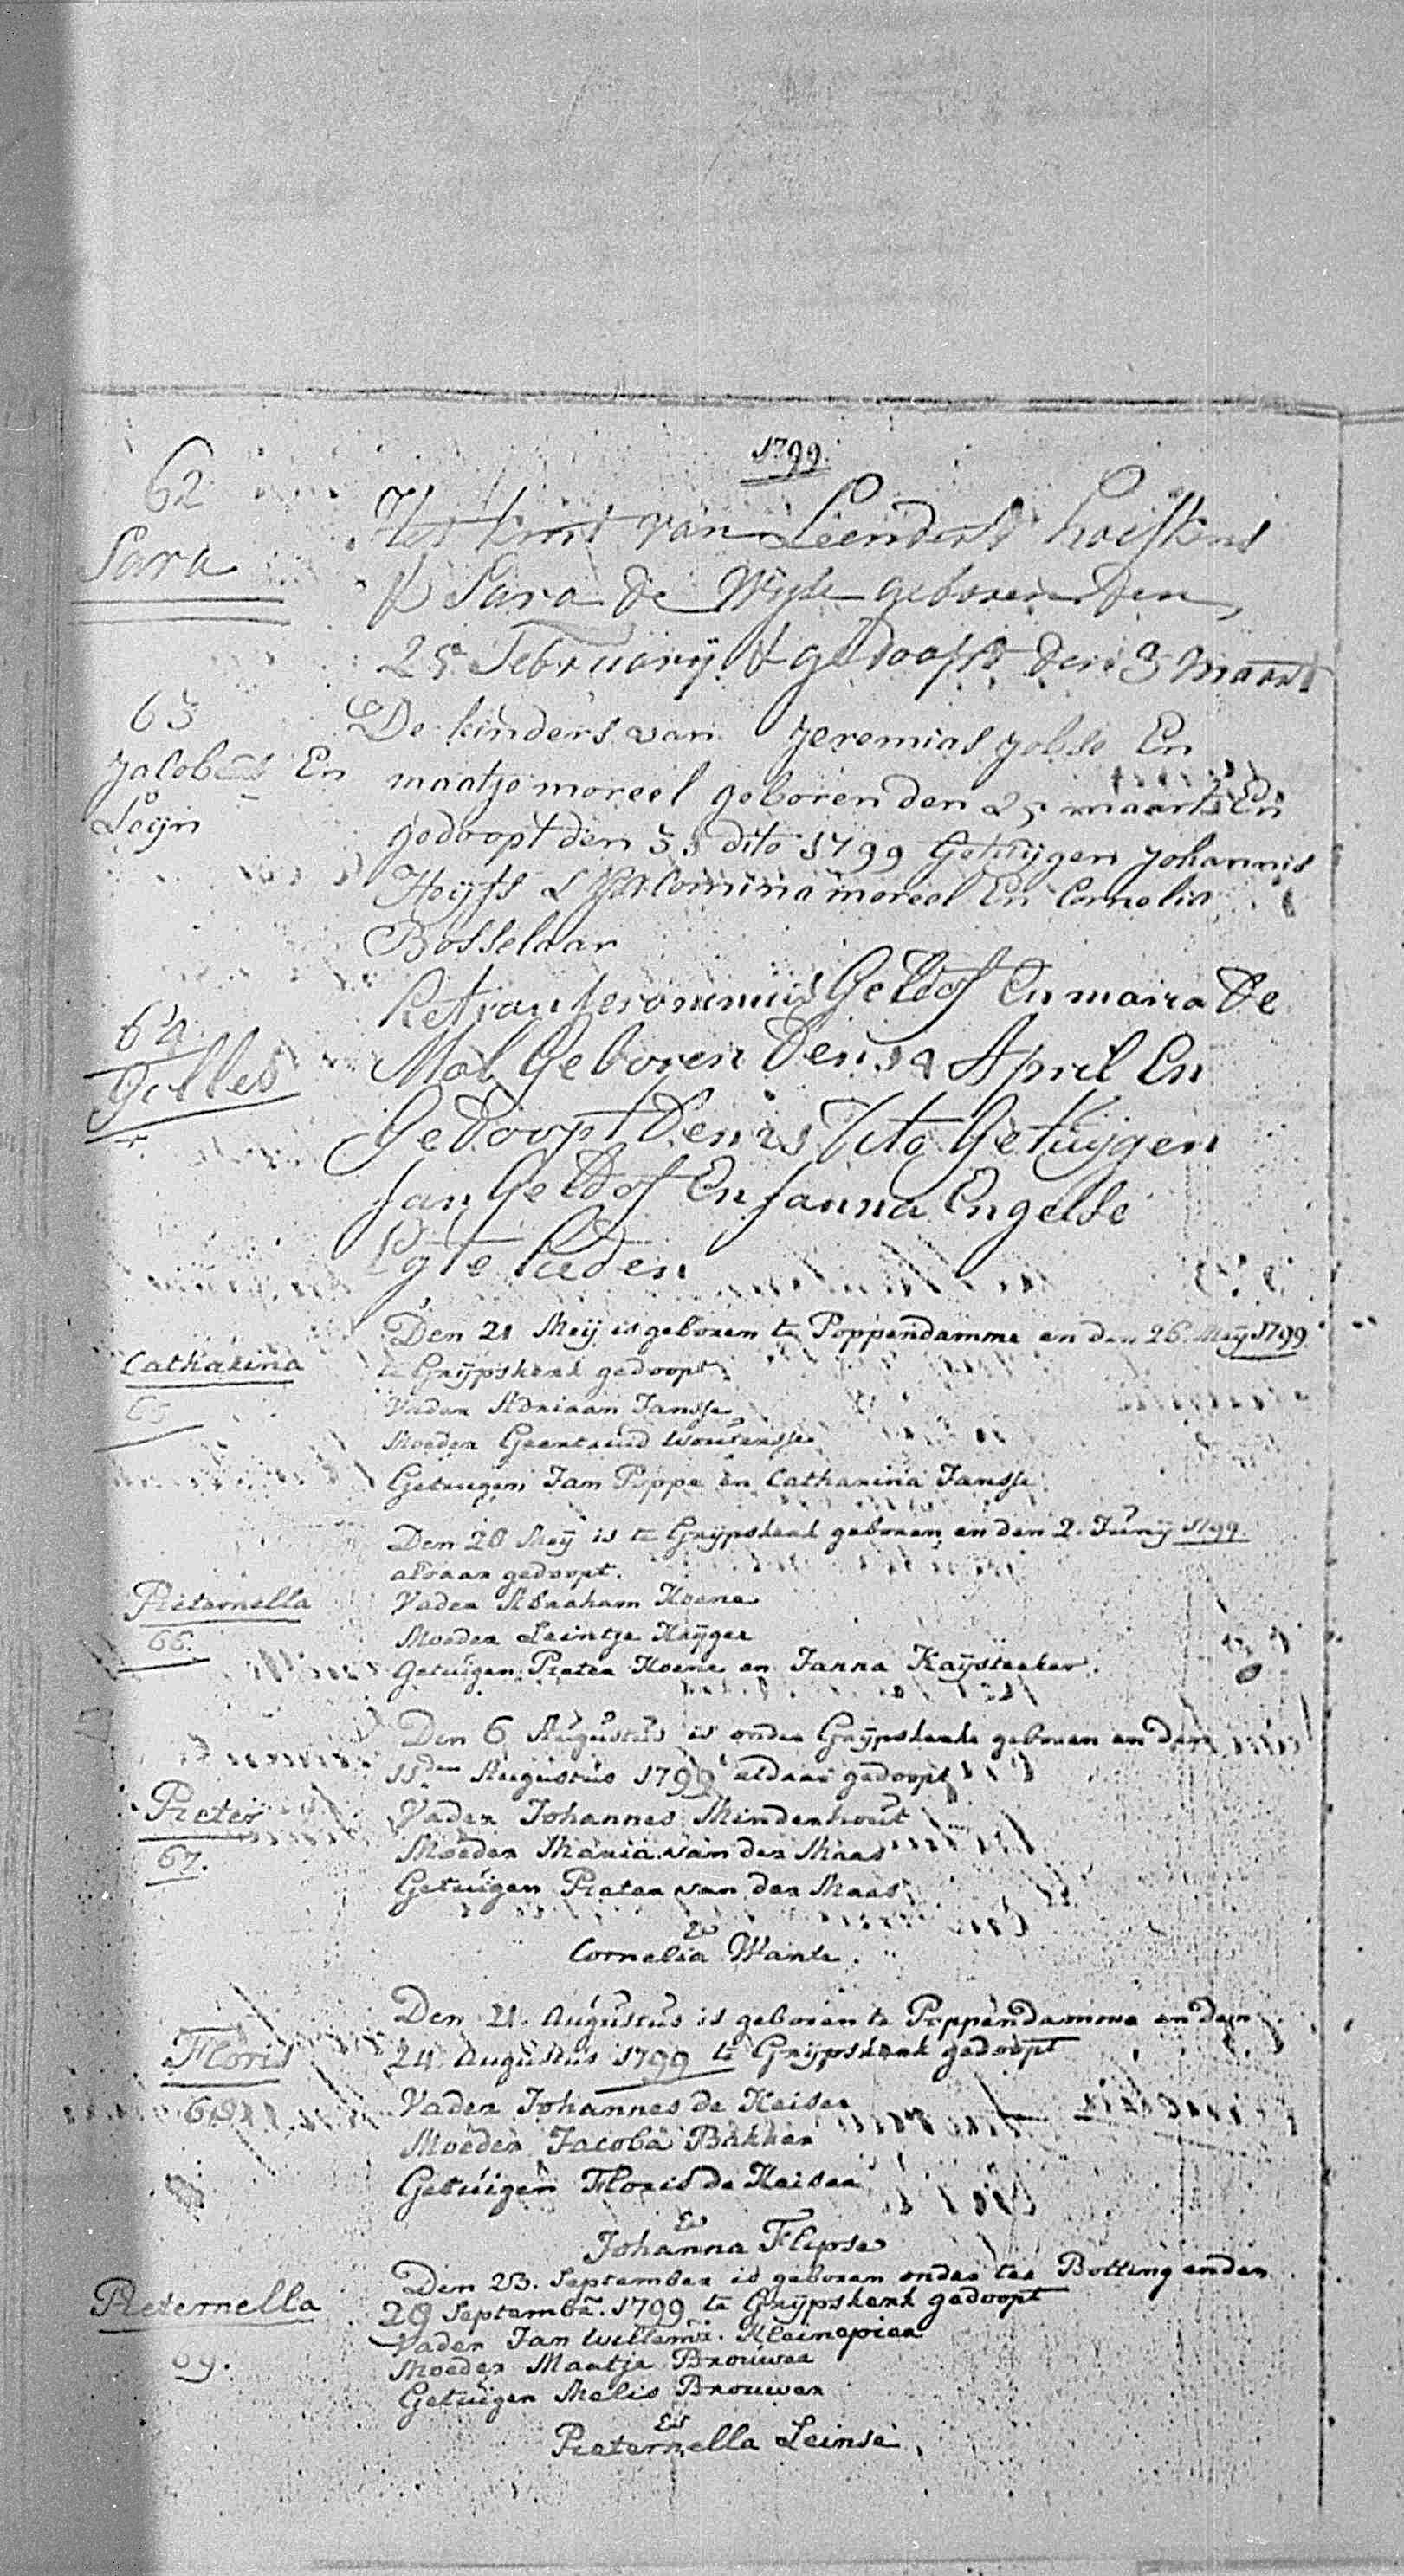 1799.
62
Sara
Het kint van Leendert hoeskens
& Sara de Wijle geboren den
25 February & gedoopt den 3 maart
63
Jacobus En
Leijn
De kinders van Jeremias Jobse En
maatje moreel geboren den 25 maart En
gedoopt den 31 dito 1799 Getuijgen Johannis
moreel En Cornelis
Bosselaar
64
Gilles
Het van Jeronimuis Geldof En mara De
Mol Geboren Den 14 April En
Gedoopt Den 21 Dito Getuijgen
Jan Geldof En Janna Engelse
Egte Lieden
Catharina
65
Den 21 Meij is geboren te Poppendamme en den 26. Meij 1799
te Grijpskerk gedoopt.
Vader Adriaan Jansse
Moeder Geertruid Wouterse
Getuigen Jan Poppe en Catharina Jansse
Pieternella
66.
Den 28 Meij is te Grijpskerk geboren en den 2. Junij 1799.
aldaar gedoopt.
Vader Abraham Koene
Moeder Leintje
Getuigen Pieter Koene en Janna
Pieter
67.
Den 6 Augustus is onder Grijpskerke geboren en den
11den Augustus 1799 aldaar gedoopt
Vader Johannes Minderhout
Moeder Maria van der Maas
Getuigen Pieter van der Maas
En
Cornelia Wante.
Floris
68
Den 21. Augustus is geboren te Poppendamme en den
24 Augustus 1799 te Grijpskerk gedoopt
Vader Johannes de Keiser
Moeder Jacoba Bakker
Getuigen Floris de Keiser
En
Johanna Flipse
Pieternella
69.
Den 23. September is geboren onder ter Botting en den
29 Septembr. 1799 te Grijpskerk gedoopt
Vader Jan Willemse. Kleinepier
Moeder Maatje Brouwer
Getuigen Melis Brouwer
En
Pieternella Leinse